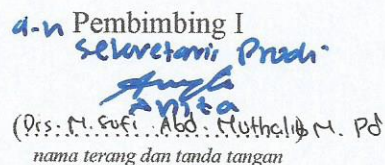 a.n Pembimbing I
Sekretaris Prodi.
Anita
(Drs. M. Sufi Abd. Muthalib M. Pd
nama terang dan tanda tangan